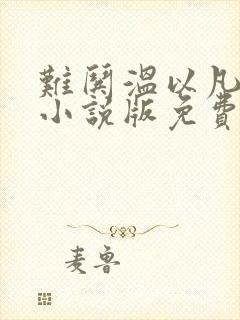 難鬨溫以凡
小說版免費
麦鲁